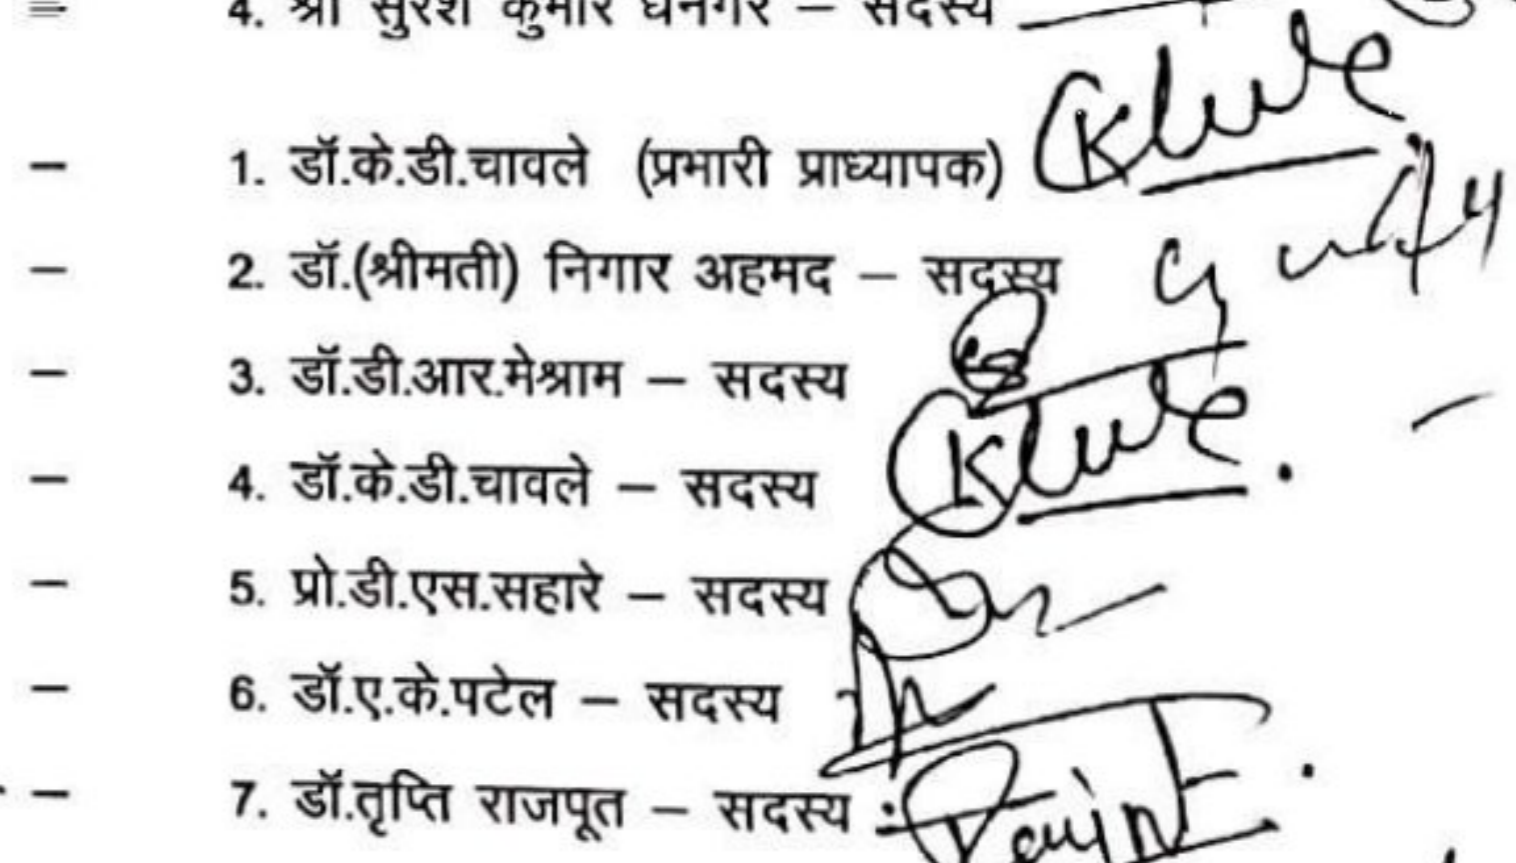 4. श्री सुरेश कुमार धनगर – सदस्य
– 1. डॉ.के.डी.चावले (प्रभारी प्राध्यापक)
– 2. डॉ.(श्रीमती) निगार अहमद – सदस्य
– 3. डॉ.डी.आर.मेश्राम – सदस्य
– 4. डॉ.के.डी.चावले – सदस्य
– 5. प्रो.डी.एस.सहारे – सदस्य
– 6. डॉ.ए.के.पटेल – सदस्य
– 7. डॉ.तृप्ति राजपूत – सदस्य